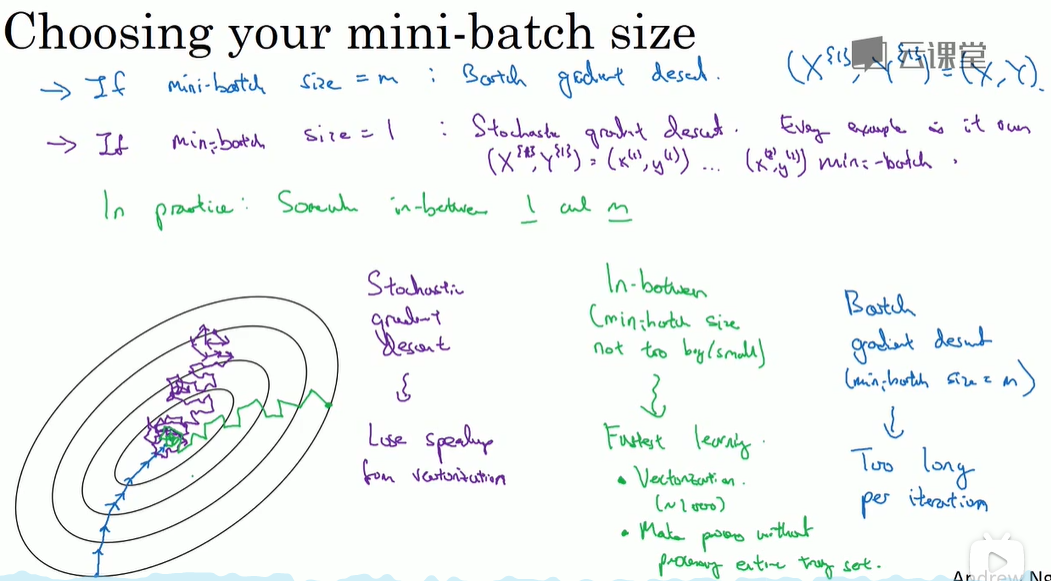 Choosing your mini-batch size
云课堂
→ If mini-batch size = m : Batch gradient descent. (X^{1}, Y^{1}) = (X, Y).
→ If mini-batch size = 1 : Stochastic gradient descent. Every example is it own
(X^{1}, Y^{1}) = (x^(1), y^(1)) ... (x^(2), y^(2)) mini-batch.
In practice: Somewhere in-between 1 and m
Stochastic
gradient
descent
Lose speedup
from vectorization
In-between
(minibatch size
not too big/small)
Fastest learning.
• Vectorization.
(~1000)
• Make progress without
processing entire training set.
Batch
gradient descent
(minibatch size = m)
Too long
per iteration
Andrew Ng